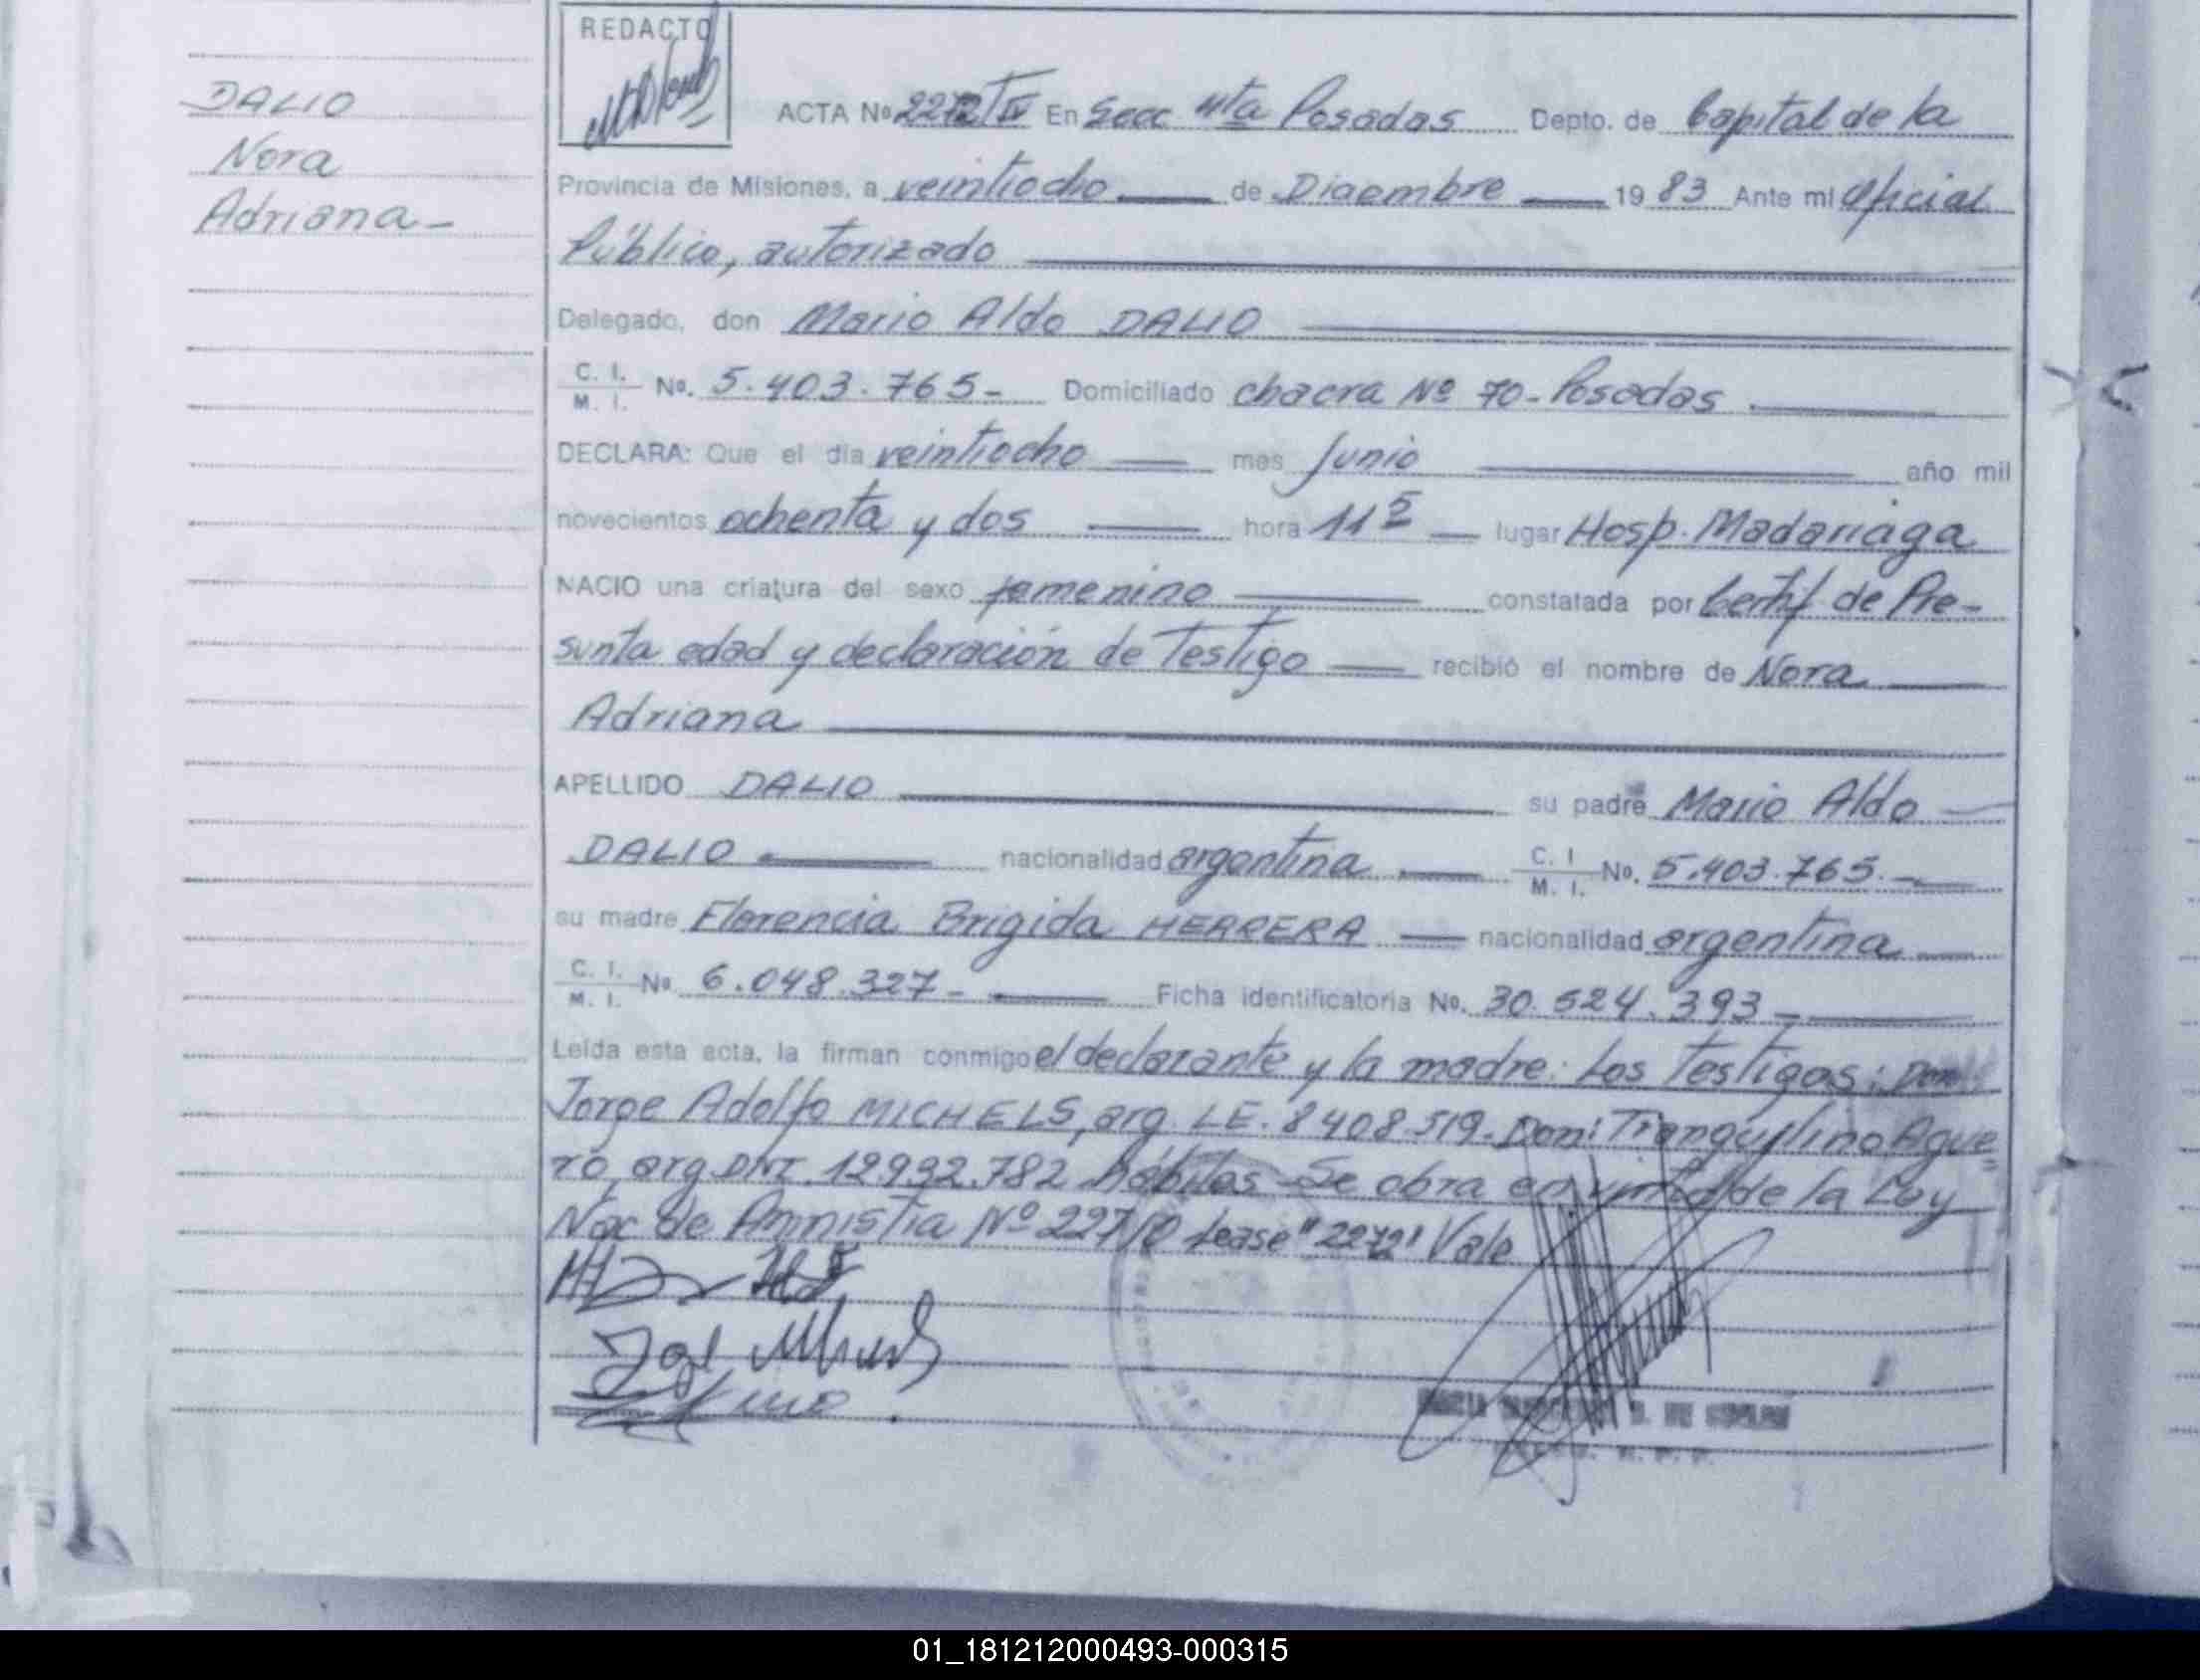 REDACTO
DALIO
Nora
Adriana -
ACTA Nº 2272 TIV En Secc 4ta Posadas Depto. de Capital de la
Provincia de Misiones, a veintiocho de Diciembre 1983 Ante mi Oficial
Público, autorizado
Delegado, don Mario Aldo DALIO
C. I. M. I. No. 5.403.765- Domiciliado chacra Nº 70 - Posadas
DECLARA: Que el dia veintiocho mes Junio año mil
novecientos ochenta y dos hora 11 lugar Hosp. Madariaga
NACIO una criatura del sexo femenino constatada por Certif. de Pre-
sunta edad y declaración de Testigo recibió el nombre de Nora
Adriana
APELLIDO DALIO su padre Mario Aldo
DALIO nacionalidad argentina C. I M. I. No. 5.403.765.-
su madre Florencia Brigida HERRERA nacionalidad argentina
C. I. M. I. No 6.048.327- Ficha identificatoria No. 30.524.393-
Leída esta acta, la firman conmigo el declarante y la madre: Los Testigos: Don
Jorge Adolfo MICHELS, arg. LE. 8408.519. Don: Tranquilino Ague
ro, arg DNI. 12992.782 hábiles - Se obra en virtud de la Ley
Nac de Amnistia Nº Lease "2272" Vale
01_181212000493-000315